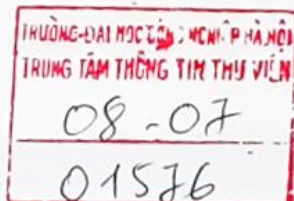 TRƯỜNG-ĐẠI HỌC CÔNG NGHIỆP HÀ NỘI
TRUNG TÂM THÔNG TIN THƯ VIỆN
08-07
01576